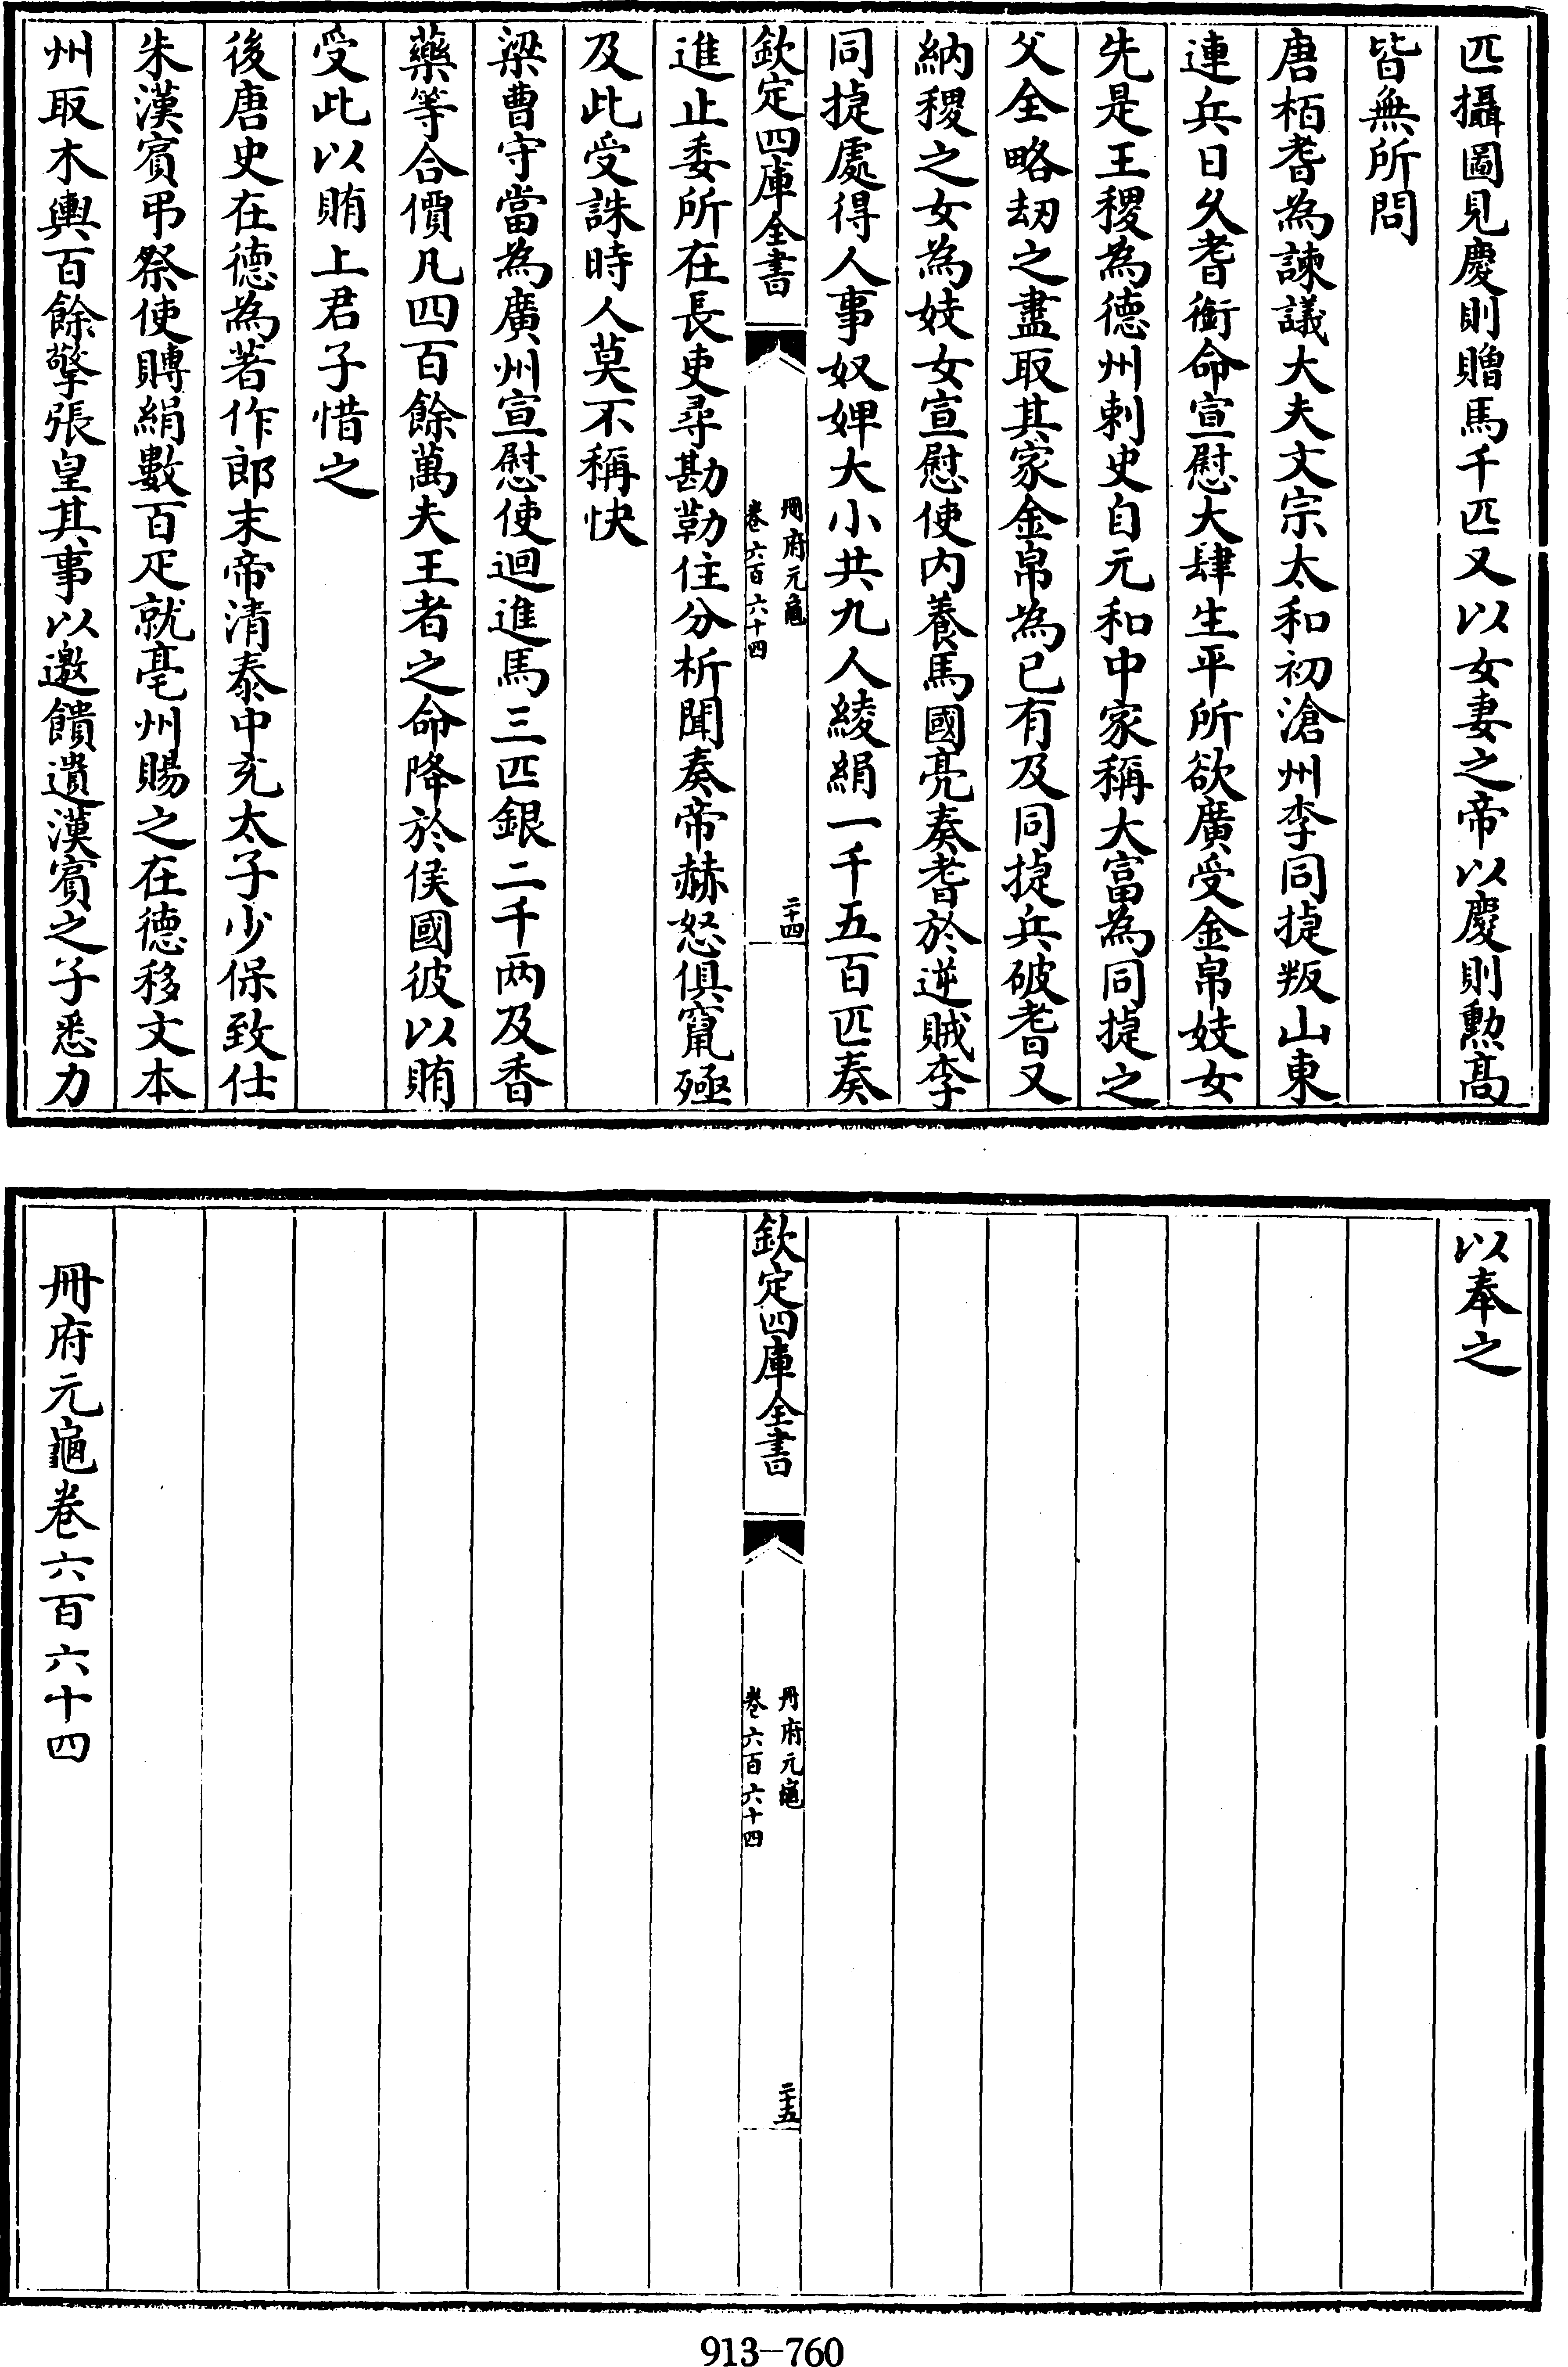 匹攝圖見慶則贈馬千匹又以女妻之帝以慶則勲髙
皆無所問
唐栢耆為諫議大夫文宗太和初滄州李同㨗叛山東
連兵日久耆銜命宣慰大肆生平所欲廣受金帛妓女
先是王稷為德州刺史自元和中家稱大富為同㨗之
父全略刼之盡取其家金帛為已有及同㨗兵破耆又
納稷之女為妓女宣慰使内養馬國亮奏耆於逆賊李
同㨗處得人事奴婢大小共九人綾絹一千五百匹奏
欽定四庫全書
冊府元龜
卷六百六十四
二十四
進止委所在長吏尋勘勒住分析聞奏帝赫怒俱竄殛
及此受誅時人莫不稱快
梁曹守當為廣州宣慰使迴進馬三匹銀二千两及香
藥等合價凡四百餘萬夫王者之命降於侯國彼以賄
受此以賄上君子惜之
後唐史在德為著作郎末帝清泰中充太子少保致仕
朱漢賓弔祭使賻絹數百疋就亳州賜之在德移文本
州取木輿百餘擎張皇其事以邀饋遺漢賓之子悉力
以奉之
欽定四庫全書
冊府元龜
卷六百六十四
二十五
冊府元龜卷六百六十四
913-760